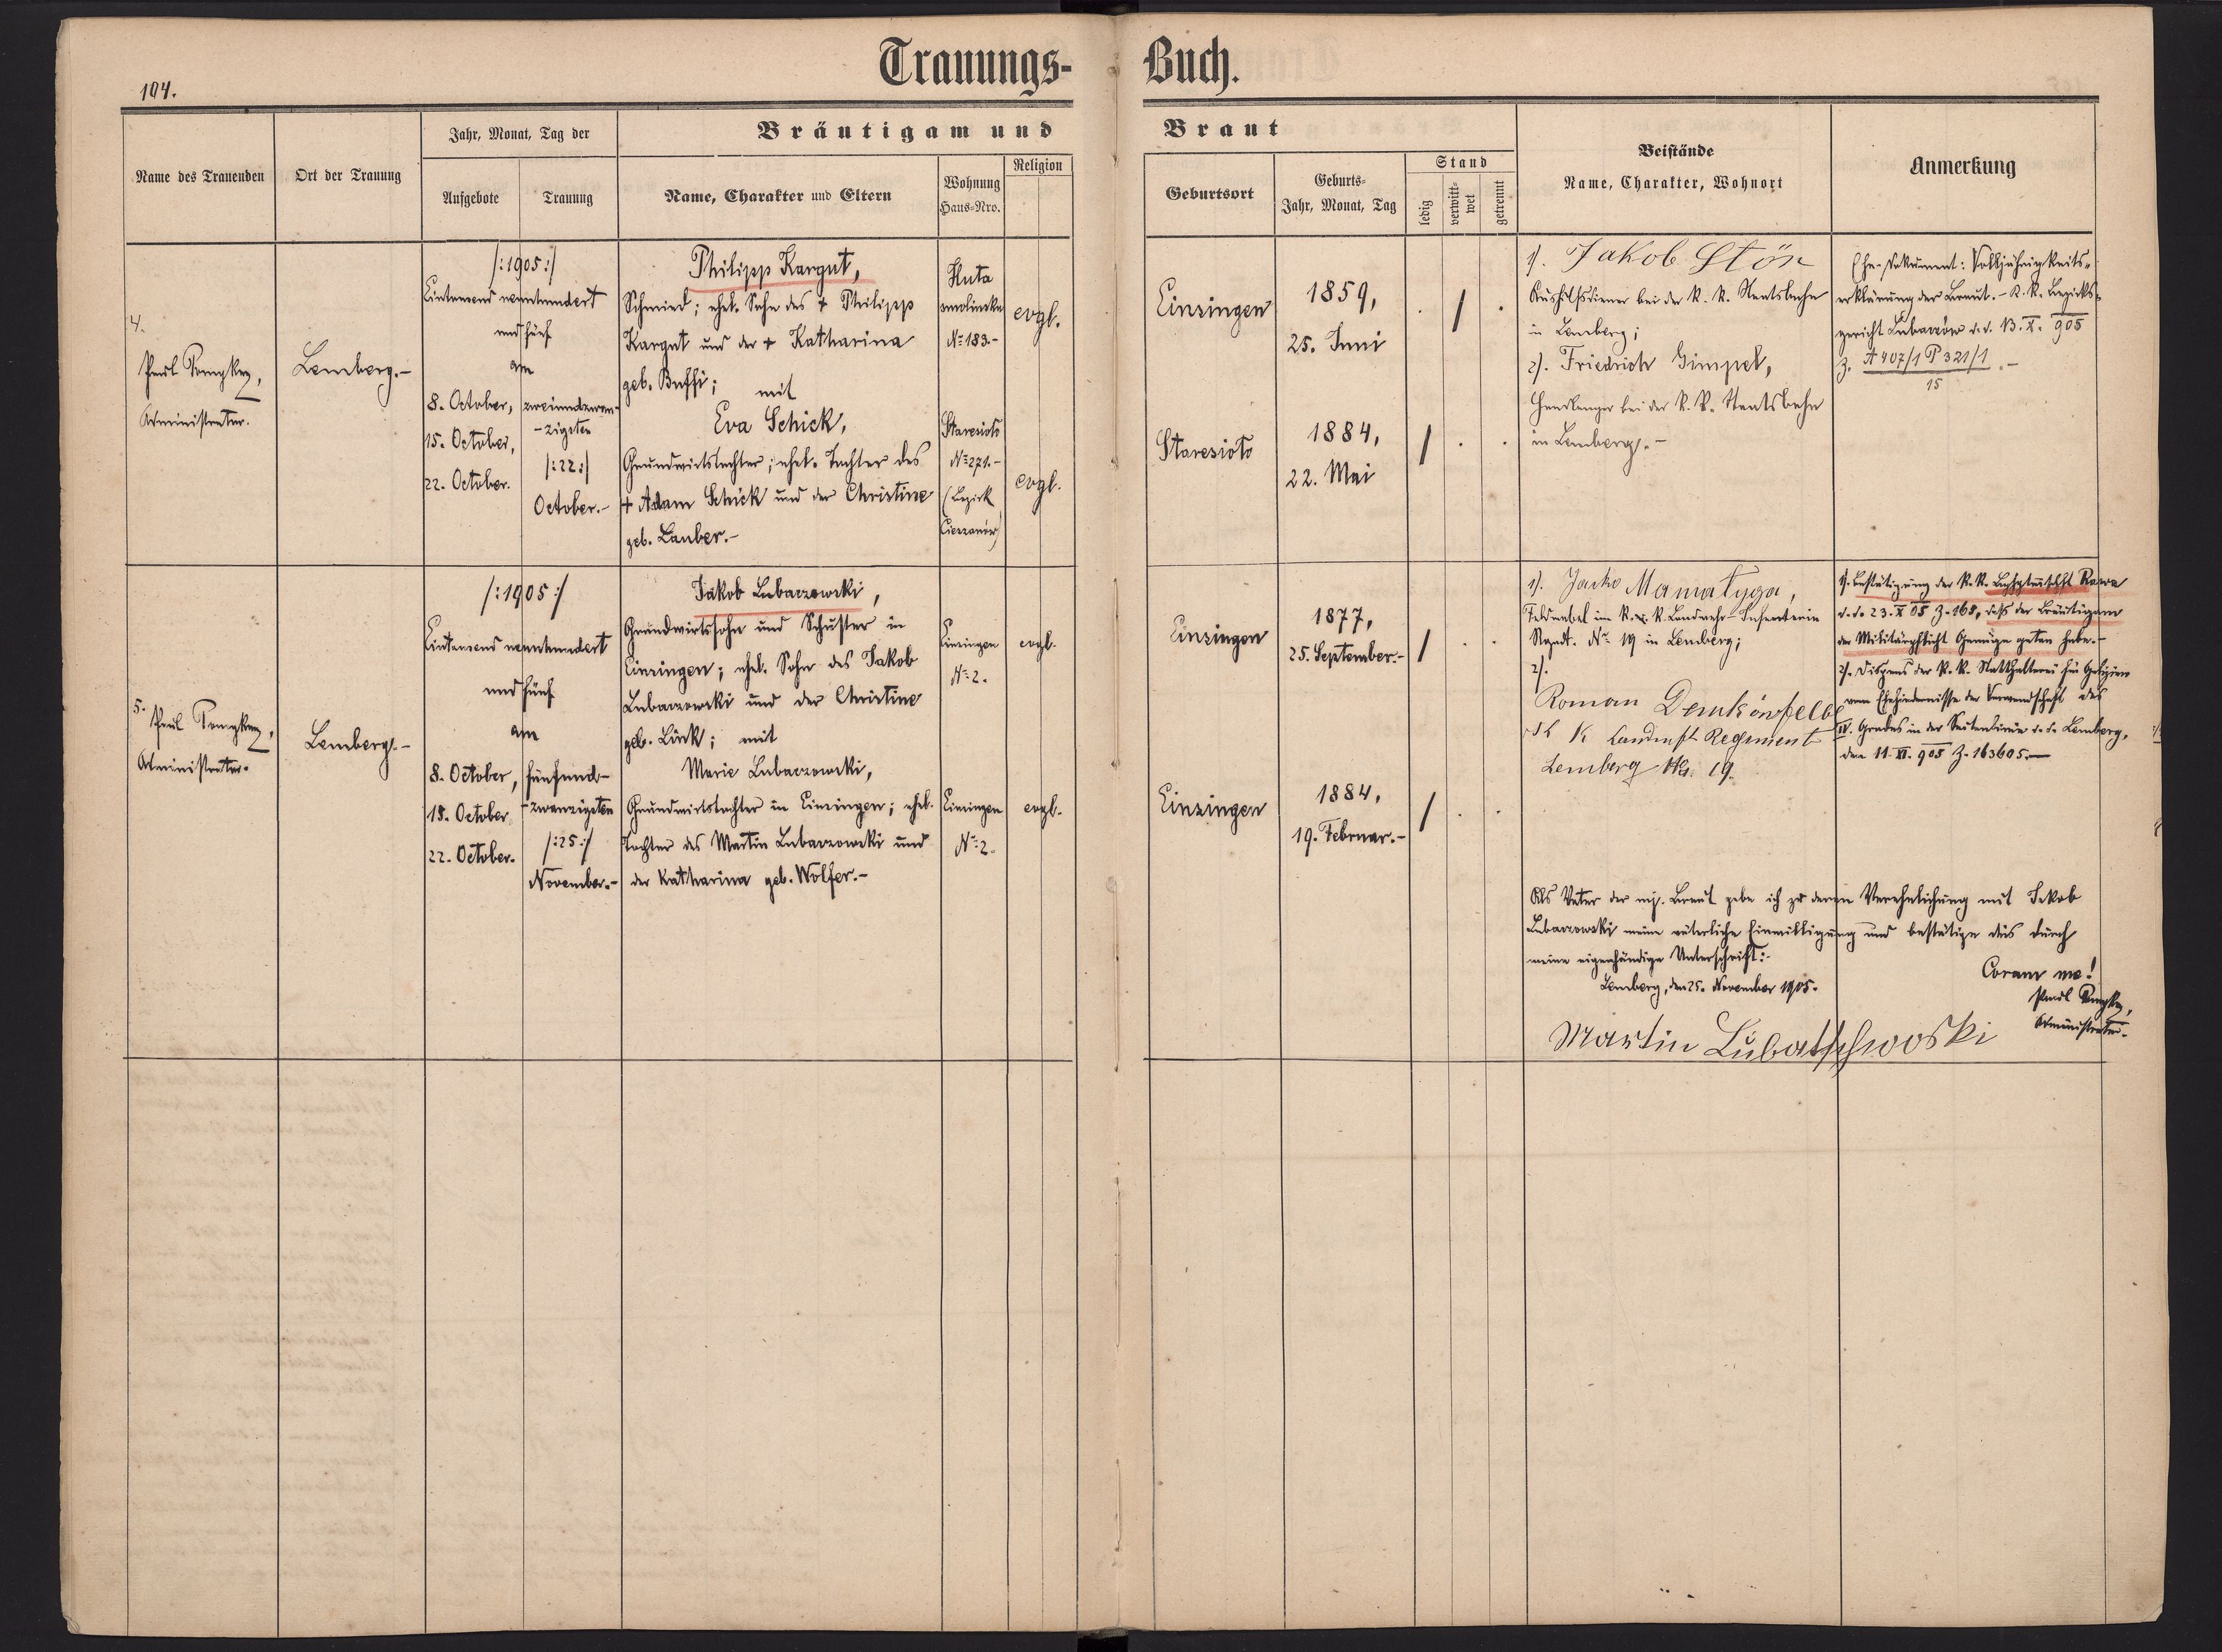 Trauungs-
Buch.
104.
Name des Trauenden
Ort der Trauung
Jahr, Monat, Tag der
Aufgebote
Trauung
Bräutigam und
Name, Charakter und Eltern
Wohnung
Haus-Nro.
Religion
Braut
Geburtsort
Geburts-
Jahr, Monat, Tag
Stand
ledig
verwitt-
wet
getrennt
Beistände
Name, Charakter, Wohnort
Anmerkung
4.
Paul
Administrator.
Lemberg.-
/:1905:/
Eintausend neunhundert
und fünf
am
8. October,
15. October,
22. October.
zweiundzwan-
-zigsten
/:22:/
October.-
Philipp Kargut,
Schmied; ehel. Sohn des + Philipp
Kargut und der + Katharina
geb. Buffi;
mit
Eva Schick,
Grundwirtstochter; ehel. Tochter des
+ Adam Schick und der Christine
geb. Lauber.-
Huta
smolinska
№ 183.-
Staresioło
№ 271.-
(Bezirk
Cieszanów)
evgl.
evgl.
Einsingen
Staresioło
1859,
25. Juni
1884,
22. Mai
1). Jakob Stör
Aushilfsdiener bei der k. k. Staatsbahn
in Lemberg;
2). Friedrich Gimpel,
Handlanger bei der k. k. Staatsbahn
in Lemberg.-
Ehe-Dokument: Volljährigkeits-
erklärung der Braut. - K. k. Bezirks-
gericht Lubaczów d. d. 13. X. 905
Z. A 407/1 P 321/1 .-
15
5.
Paul
Administrator.
Lemberg.-
/:1905:/
Eintausend neunhundert
und fünf
am
8. October,
15. October
22. October.
fünfund-
-zwanzigsten
/:25:/
November.-
Jakob Lubaczowski,
Grundwirtssohn und Schuster in
Einsingen; ehel. Sohn des Jakob
Lubaczowski und der Christine
geb. Link; mit
Marie Lubaczowski,
Grundwirtstochter in Einsingen; ehel.
Tochter des Martin Lubaczowski und
der Katharina geb. Wolfer.-
Einsingen
№ 2.
Einsingen
№ 2.
evgl.
evgl.
Einsingen
Einsingen
1877,
25. September.-
1884,
19. Februar.-
1). Jacko Mamałyga,
Feldwebel im k. k. Landwehr-Infanterie
Regmt. № 19 in Lemberg;
2).
Roman
K Regiment
Lemberg 19.
1). Bestätigung der k. k. Rawa
d. d. 23. X 05 Z. 168, daß der Bräutigam
der Militärpflicht Genüge getan habe.-
2). Dispens der k. k. Statthalterei für Galizien
vom Ehehindernisse der Verwandschaft des
IV. Grades in der Seitenlinie d. d. Lemberg,
den 11. XI. 905 Z. 163605.-
Als Vater der mj. Braut gebe ich zu deren Verehelichung mit Jakob
Lubaczowski meine väterliche Einwilligung und bestätige dies durch
meine eigenhändige Unterschrift:-
Lemberg, den 25. November 1905.
Coram me!
Paul
Administrator.
Martin Lubatschwoski